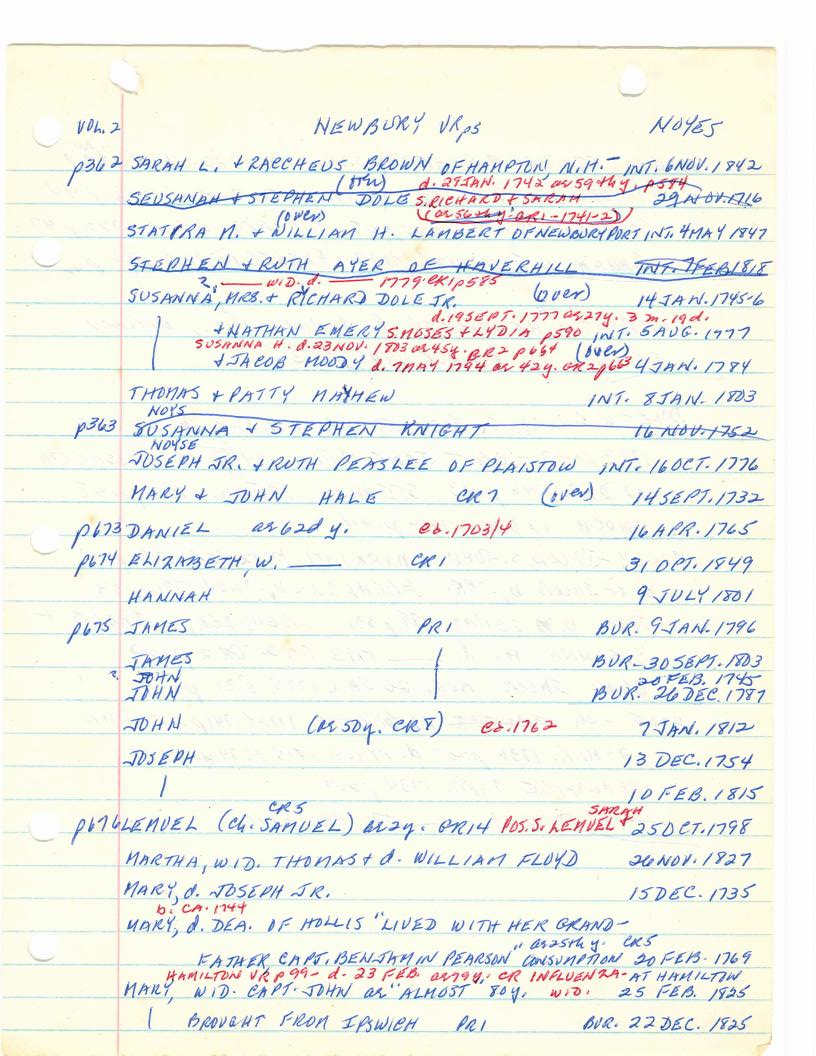 VOL. 2 NEWBURY VRps NOYES
p362 SARAH L. + ZACCHEUS BROWN OF HAMPTON, N.H. - INT. 6 NOV. 1842
(over) d. 29 JAN. 1742 ae 59th y. p584
SEUSANAH + STEPHEN DOLE S. RICHARD + SARAH 29 NOV. 1716
(over) (ae 56th y. GR1-1741-2)
STATIRA M. + WILLIAM H. LAMBERT OF NEWBURYPORT INT. 4 MAY 1847
STEPHEN + RUTH AYER OF HAVERHILL INT. 7 FEB 1818
? —— WID. d. —— 1779 CR1 p585
SUSANNA, MRS. + RICHARD DOLE JR. (over) 14 JAN. 1745-6
d. 19 SEPT. 1777 ae 27y. 3 m. 19 d.
+ NATHAN EMERY S. MOSES + LYDIA p590 INT. 5 AUG. 1777
SUSANNA H. d. 23 NOV. 1803 ae 45y. GR2 p664 (over)
+ JACOB MOODY d. 7 MAY 1794 ae 42y. GR2 p663 4 JAN. 1784
THOMAS + PATTY MAYHEW INT. 8 JAN. 1803
NOYS
p363 SUSANNA + STEPHEN KNIGHT 16 NOV. 1752
NOYSE
JOSEPH JR. + RUTH PEASLEE OF PLAISTOW INT. 16 OCT. 1776
MARY & JOHN HALE CR7 (over) 14 SEPT. 1732
p673 DANIEL ae 62d y. cb. 1703/4 16 APR. 1765
p674 ELIZABETH, W. —— CR1 31 OCT. 1849
HANNAH 9 JULY 1801
p675 JAMES PR1 BUR. 9 JAN. 1796
JAMES BUR. 30 SEPT. 1803
? JOHN 20 FEB. 1745
JOHN BUR. 26 DEC. 1787
JOHN (ae 50y. CR8) cb. 1762 7 JAN. 1812
JOSEPH 13 DEC. 1754
10 FEB. 1815
CR5 SARAH
p676 LEMUEL (ch. SAMUEL) ae 2y. GR14 POS. S. LEMUEL + 25 OCT. 1798
MARTHA, WID. THOMAS + d. WILLIAM FLOYD 26 NOV. 1827
MARY, d. JOSEPH JR. 15 DEC. 1735
b. CA. 1744
MARY, d. DEA. OF HOLLIS "LIVED WITH HER GRAND-
" ae 25th y. CR5
FATHER, CAPT. BENJAMIN PEARSON CONSUMPTION 20 FEB. 1769
HAMILTON VR p99 - d. 23 FEB. ae 79y. CR INFLUENZA - AT HAMILTON
MARY, WID. CAPT. JOHN ae "ALMOST 80y. WID. 25 FEB. 1825
BROUGHT FROM IPSWICH PR1 BUR. 22 DEC. 1825